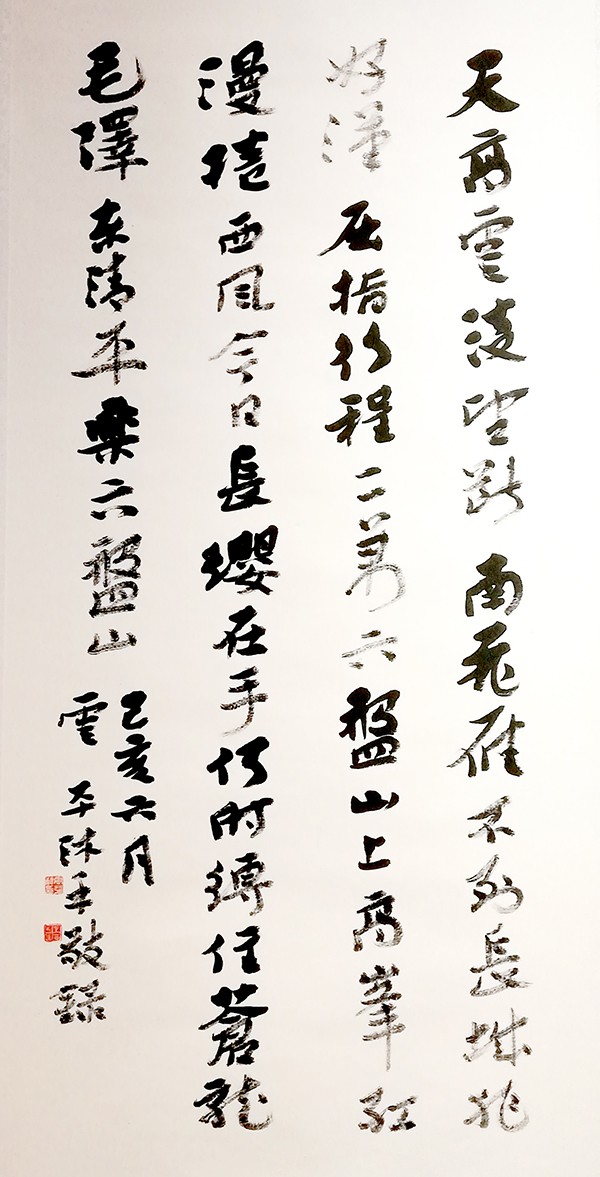 天高雲淡望斷南飛雁不到長城非
好漢屈指行程二萬六盤山上高峯紅
漫捲西風今日長纓在手何時縛住蒼龍
毛澤東清平樂六盤山
己亥六月
雲平沐手敬錄